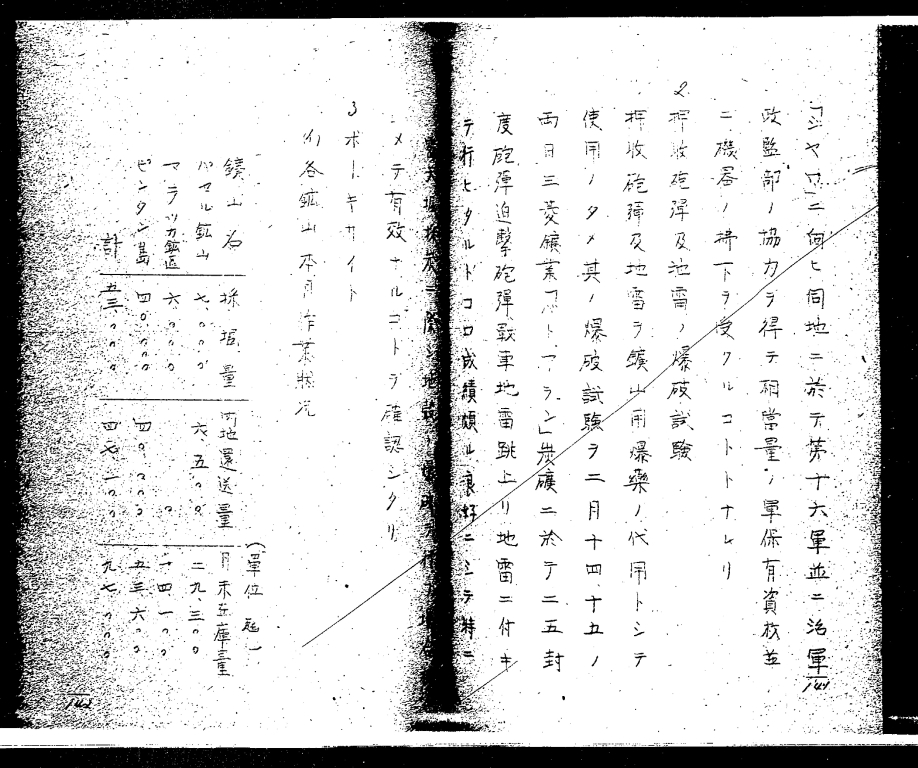 「ジャワ」ニ伺ヒ同地ニ於テ第十六軍並ニ治軍
政監部ノ協力ヲ得テ相当量ノ軍保有資材並
ニ機器ノ拂下ヲ受クルコトトナレリ
2 押收砲弾及地雷ノ爆破試験
押收砲弾及地雷ヲ鑛山用爆薬ノ代用トシテ
使用ノタメ其ノ爆破試験ヲ二月十四十五ノ
両日三菱鑛業「バトアラン」炭礦ニ於テ二五封
度砲弾迫撃砲弾戰車地雷跳上リ地雷ニ付キ
テ行ヒタルトコロ成績頗ル良好ニシテ特ニ
メテ有效ナルコトヲ確認シタリ
3 ボーキサイト
(イ)各鉱山本月作業狀况
(單位瓲)
鑛山名 採掘量 内地還送量 月末在庫量
バセル鉱山 七、〇〇〇 六、五〇〇 二九、三〇〇
マラッカ鉱區 六、〇〇〇 〇 一四、一〇〇
ビンタン島 四〇、〇〇〇 四〇、〇〇〇 五三、六〇〇
計 五三、〇〇〇 九七、〇〇〇
141
142